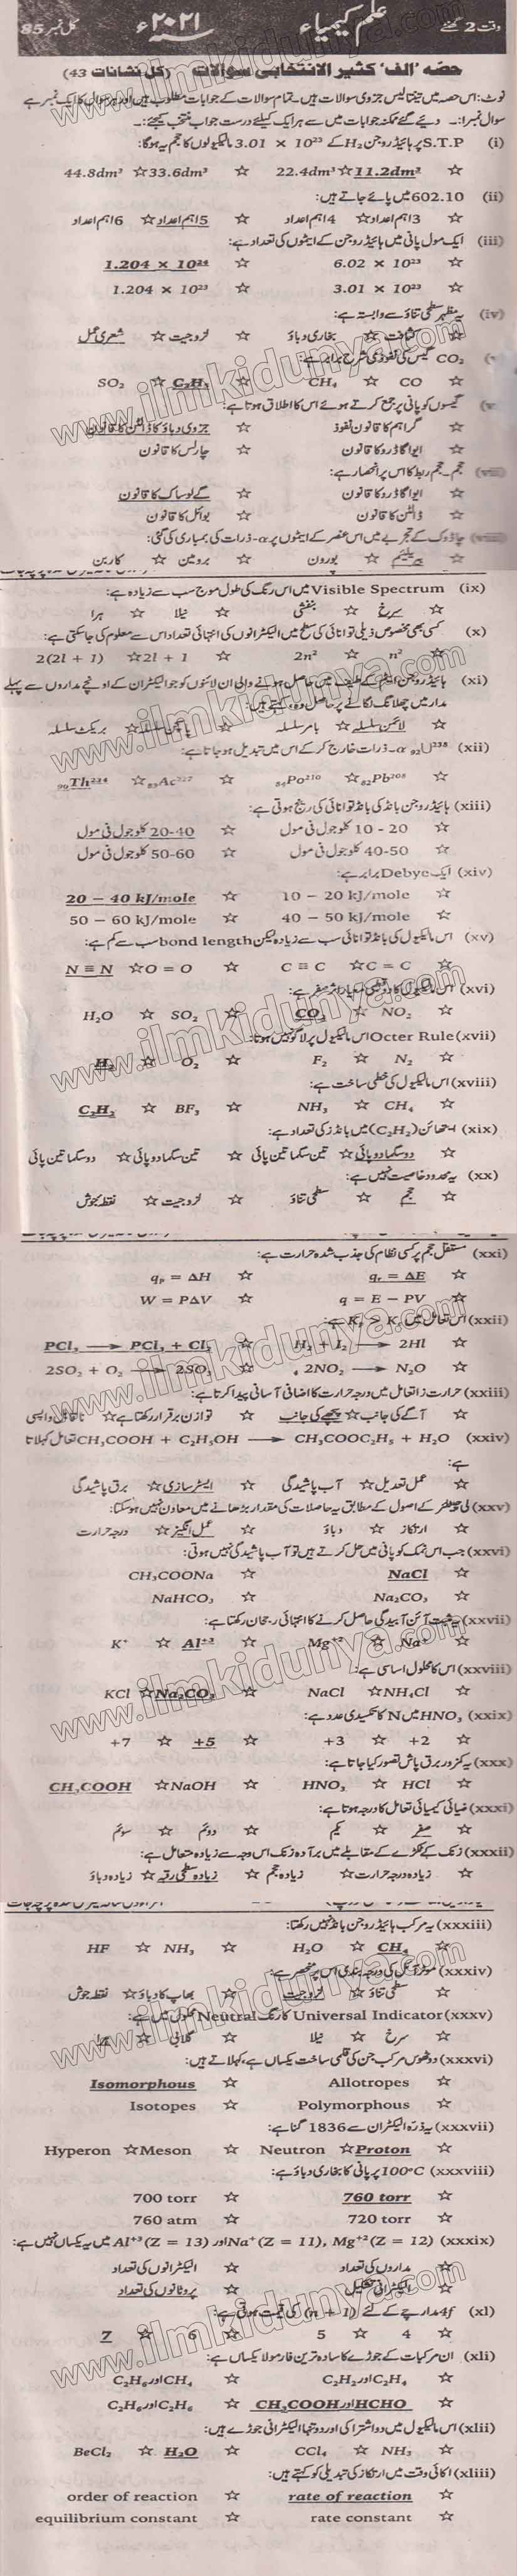 وقت 2 گھنٹے علم کیمیاء سنہ ۲۰۲۱ء کل نمبر 85
حصہ 'الف' کثیر الانتخابی سوالات (کل نشانات 43)
نوٹ: اس حصہ میں تینتالیس جزوی سوالات ہیں۔ تمام سوالات کے جوابات مطلوب ہیں اور ہر سوال کا ایک نمبر ہے
سوال نمبر ا: دیئے گئے ممکنہ جوابات میں سے ہر ایک کیلئے درست جواب منتخب کیجئے:
(i) S.T.P پر ہائیڈروجن H₂ کے 3.01 × 10²³ مالیکیولوں کا حجم یہ ہوگا:
☆ 11.2dm³ ☆ 22.4dm³ ☆ 33.6dm³ ☆ 44.8dm³
(ii) 602.10 میں پائے جاتے ہیں:
☆ 3 اہم اعداد ☆ 4 اہم اعداد ☆ 5 اہم اعداد ☆ 6 اہم اعداد
(iii) ایک مول پانی میں ہائیڈروجن کے ایٹموں کی تعداد ہے:
☆ 6.02 × 10²³ ☆ 1.204 × 10²⁴
☆ 3.01 × 10²³ ☆ 1.204 × 10²³
(iv) یہ مظہر سطحی تناؤ سے وابستہ ہے:
☆ کثافت ☆ بخاری دباؤ ☆ لزوجیت ☆ شعری عمل
CO₂ گیس کی نفوذ کی شرح برابر ہے:
☆ CO ☆ CH₄ ☆ C₃H₈ ☆ SO₂
گیسوں کو پانی پر جمع کرتے ہوئے اس کا اطلاق ہوتا ہے:
☆ گراہم کا قانون نفوذ ☆ جزوی دباؤ کا ڈالٹن کا قانون
☆ ایواگاڈرو کا قانون ☆ چارلس کا قانون
حجم۔ حجم ربط کا اس پر انحصار ہے:
☆ ایواگاڈرو کا قانون ☆ گے لوساک کا قانون
☆ ڈالٹن کا قانون ☆ بوائل کا قانون
چاڈوک کے تجربے میں اس عنصر کے ایٹموں پر α- ذرات کی بمباری کی گئی:
☆ بیریلیم ☆ بورون ☆ برومین ☆ کاربن
(ix) Visible Spectrum میں اس رنگ کی طول موج سب سے زیادہ ہے:
☆ سرخ ☆ بنفشی ☆ نیلا ☆ ہرا
(x) کسی بھی مخصوص ذیلی توانائی کی سطح میں الیکٹرانوں کی انتہائی تعداد اس سے معلوم کی جاسکتی ہے:
☆ n² ☆ 2n² ☆ 2l + 1 ☆ 2(2l + 1)
(xi) ہائیڈروجن ایٹم کے طیف میں حاصل ہونے والی ان لائنوں کو جو الیکٹران کے اونچے مداروں سے پہلے
مدار میں چھلانگ لگانے پر حاصل ہو، کہتے ہیں:
☆ لائمن سلسلہ ☆ بامر سلسلہ ☆ پاشن سلسلہ ☆ بریکٹ سلسلہ
(xii) ₉₂U²³⁸ α- ذرات خارج کرکے اس میں تبدیل ہو جاتا ہے:
☆ ₈₂Pb²⁰⁸ ☆ ₈₄Po²¹⁰ ☆ ₈₉Ac²²⁷ ☆ ₉₀Th²³⁴
(xiii) ہائیڈروجن بانڈ کی بانڈ توانائی کی رینج ہوتی ہے:
☆ 10 - 20 کلو جول فی مول ☆ 20-40 کلو جول فی مول
☆ 40-50 کلو جول فی مول ☆ 50-60 کلو جول فی مول
(xiv) ایک Debye برابر ہے:
☆ 10 – 20 kJ/mole ☆ 20 – 40 kJ/mole
☆ 40 – 50 kJ/mole ☆ 50 – 60 kJ/mole
(xv) اس مالیکیول کی بانڈ توانائی سب سے زیادہ لیکن bond length سب سے کم ہے:
☆ C = C ☆ C ≡ C ☆ O = O ☆ N ≡ N
(xvi) اس مالیکیول کا دو قطبی معیار اثر صفر ہے:
☆ NO₂ ☆ CO₂ ☆ SO₂ ☆ H₂O
(xvii) Octer Rule اس مالیکیول پر لاگو نہیں ہوتا:
☆ N₂ ☆ F₂ ☆ O₂ ☆ H₂
(xviii) اس مالیکیول کی خطی ساخت ہے:
☆ CH₄ ☆ NH₃ ☆ BF₃ ☆ C₂H₂
(xix) ایتھائن (C₂H₂) میں بانڈز کی تعداد ہے:
☆ دو سگما دو پائی ☆ تین سگما تین پائی ☆ تین سگما دو پائی ☆ دو سگما تین پائی
(xx) یہ محدود خاصیت نہیں ہے:
☆ حجم ☆ سطحی تناؤ ☆ لزوجیت ☆ نقطہ جوش
(xxi) مستقل حجم پر کسی نظام کی جذب شدہ حرارت ہے:
☆ qᵥ = ΔE ☆ qₚ = ΔH
☆ q = E – PV ☆ W = PΔV
(xxii) اس تعامل میں Kₚ > K꜀ ہے:
☆ H₂ + I₂ ⟶ 2HI ☆ PCl₅ ⟶ PCl₃ + Cl₂
☆ 2NO₂ ⟶ N₂O ☆ 2SO₂ + O₂ ⟶ 2SO₃
(xxiii) حرارت زا تعامل میں درجہ حرارت کا اضافی آسانی پیدا کرتا ہے:
☆ آگے کی جانب ☆ پیچھے کی جانب ☆ توازن برقرار رکھتا ہے ☆ ناقابل واپسی
(xxiv) CH₃COOH + C₂H₅OH ⟶ CH₃COOC₂H₅ + H₂O تعامل کہلاتا
ہے:
☆ عمل تعدیل ☆ آب پاشیدگی ☆ ایسٹر سازی ☆ برق پاشیدگی
(xxv) لی چیٹلئر کے اصول کے مطابق یہ حاصلات کی مقدار بڑھانے میں معاون نہیں ہوسکتا:
☆ ارتکاز ☆ دباؤ ☆ عمل انگیز ☆ درجہ حرارت
(xxvi) جب اس نمک کو پانی میں حل کرتے ہیں تو آب پاشیدگی نہیں ہوتی:
☆ NaCl ☆ CH₃COONa
☆ Na₂CO₃ ☆ NaHCO₃
(xxvii) یہ مثبت آئن آبیدگی حاصل کرنے کا انتہائی رجحان رکھتا ہے:
☆ Na⁺ ☆ Mg⁺² ☆ Al⁺³ ☆ K⁺
(xxviii) اس کا محلول اساسی ہے:
☆ NH₄Cl ☆ NaCl ☆ Na₂CO₃ ☆ KCl
(xxix) HNO₃ میں N کا تکسیدی عدد ہے:
☆ +2 ☆ +3 ☆ +5 ☆ +7
(xxx) یہ کمزور برق پاش تصور کیا جاتا ہے:
☆ HCl ☆ HNO₃ ☆ NaOH ☆ CH₃COOH
(xxxi) ضیائی کیمیائی تعامل کا درجہ ہوتا ہے:
☆ صفر ☆ یکم ☆ دوئم ☆ سوئم
(xxxii) زنک کے ٹکڑے کے مقابلے میں برادہ زنک اس وجہ سے زیادہ متعامل ہے:
☆ زیادہ درجہ حرارت ☆ زیادہ حجم ☆ زیادہ سطحی رقبہ ☆ زیادہ دباؤ
(xxxiii) یہ مرکب ہائیڈروجن بانڈ نہیں رکھتا:
☆ CH₄ ☆ H₂O ☆ NH₃ ☆ HF
(xxxiv) موٹر آئل کی درجہ بندی اس پر منحصر ہے:
☆ سطحی تناؤ ☆ لزوجیت ☆ بھاپ کا دباؤ ☆ نقطہ جوش
(xxxv) Universal Indicator کا رنگ Neutral محلول میں ہے:
☆ سرخ ☆ نیلا ☆ گلابی ☆ ہرا
(xxxvi) دو ٹھوس مرکب جن کی قلمی ساخت یکساں ہے، کہلاتے ہیں:
☆ Allotropes ☆ Isomorphous
☆ Polymorphous ☆ Isotopes
(xxxvii) یہ ذرہ الیکٹران سے 1836 گنا ہے:
☆ Proton ☆ Neutron ☆ Meson ☆ Hyperon
(xxxviii) 100°C پر پانی کا بخاری دباؤ ہے:
☆ 760 torr ☆ 700 torr
☆ 720 torr ☆ 760 atm
(xxxix) Mg⁺²(Z = 12) ،Na⁺(Z = 11) اور Al⁺³(Z = 13) میں یہ یکساں نہیں ہے:
☆ مداروں کی تعداد ☆ الیکٹرانوں کی تعداد
☆ الیکٹرانی تشکیل ☆ پروٹانوں کی تعداد
(xl) 4f مدارچے کے لئے (n + l) کی قیمت ہوتی ہے:
☆ 4 ☆ 5 ☆ 6 ☆ 7
(xli) ان مرکبات کے جوڑے کا سادہ ترین فارمولا یکساں ہے:
☆ C₂H₄ اور C₂H₂ ☆ CH₄ اور C₂H₆
☆ HCHO اور CH₃COOH ☆ C₂H₆ اور C₆H₆
(xlii) اس مالیکیول میں دو اشتراکی اور دو تنہا الیکٹرانی جوڑے ہیں:
☆ NH₃ ☆ CCl₄ ☆ H₂O ☆ BeCl₂
(xliii) اکائی وقت میں ارتکاز کی تبدیلی کو کہتے ہیں:
☆ rate of reaction ☆ order of reaction
☆ rate constant ☆ equilibrium constant
www.ilmkidunya.com